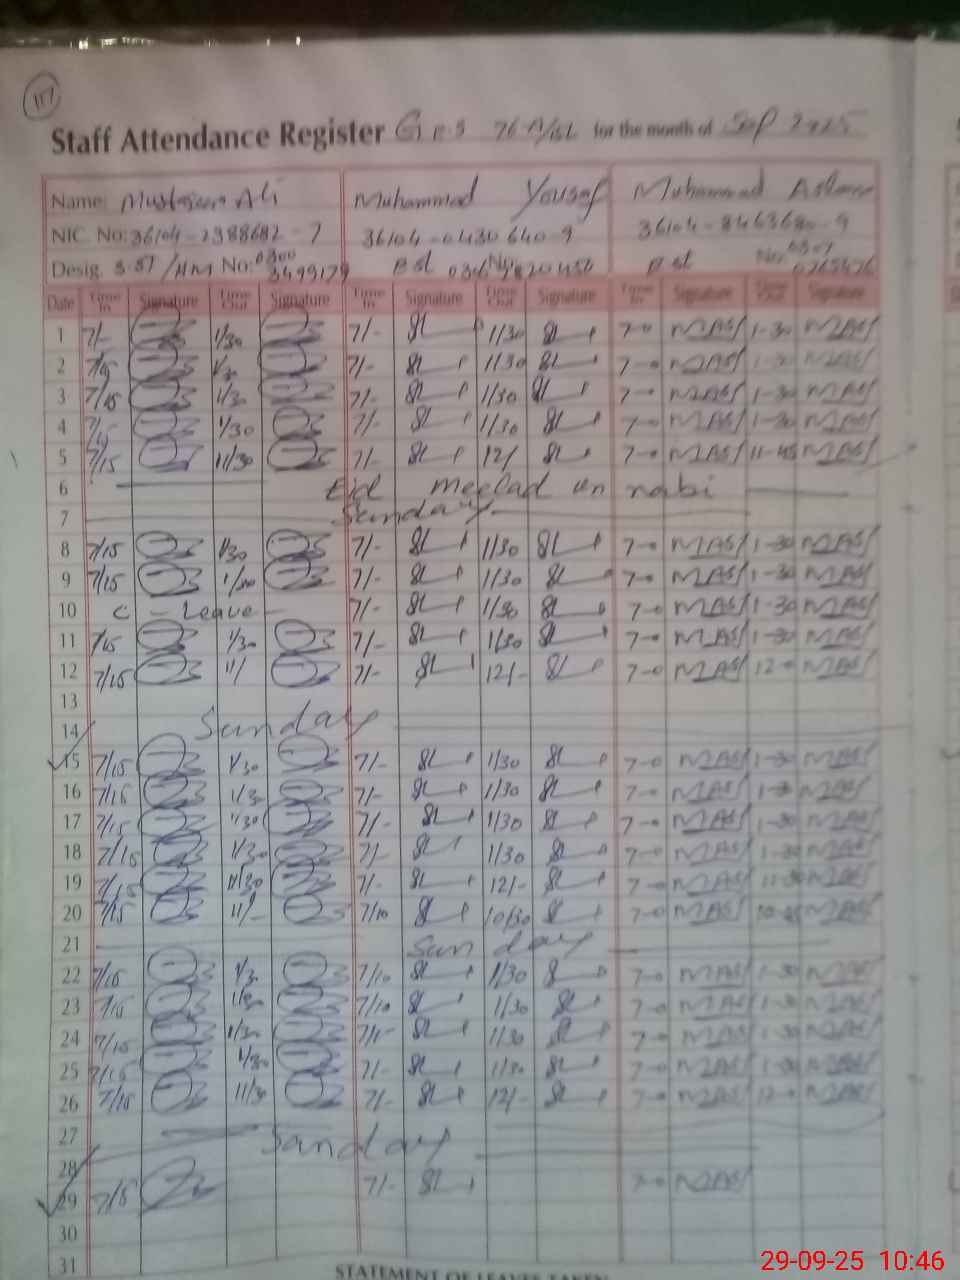 117
Staff Attendance Register G.P.S 76-A/15L for the month of Sep 2025
Name: Ali Muhammad Yousaf Muhammad Aslam
NIC. No: 36104-2388682-7 36104-0430640-9 36104-8463680-9
Desig. No: 0300 PSt No: PST No: 0307
3499179
Date Time In Signature Time Out Signature Time In Signature Time Out Signature Time In Signature Time Out Signature
1 7/- 1/30 7/- 1/30 7-0 MAS 1-30 MAS
2 7/15 1/30 7/- 1/30 7-0 MAS 1-30 MAS
3 7/15 1/30 7/- 1/30 7-0 MAS 1-30 MAS
4 7/15 1/30 7/- 1/30 7-0 MAS 1-30 MAS
5 7/15 11/30 7/- 12/ 7-0 MAS 11-45 MAS
6 Eid meelad un nabi
7 Sunday
8 7/15 1/30 7/- 1/30 7-0 MAS 1-30 MAS
9 7/15 1/30 7/- 1/30 7-0 MAS 1-30 MAS
10 C - Leave - 7/- 1/30 7-0 MAS 1-30 MAS
11 7/15 1/30 7/- 1/30 7-0 MAS 1-30 MAS
12 7/15 11/ 7/- 12/- 7-0 MAS 12-0 MAS
13
14 Sunday
15 7/15 1/30 7/- 1/30 7-0 MAS 1-30 MAS
16 7/15 1/30 7/- 1/30 7-0 MAS 1-30 MAS
17 7/15 1/30 7/- 1/30 7-0 MAS 1-30 MAS
18 7/15 1/30 7/- 1/30 7-0 MAS 1-30 MAS
19 7/15 11/30 7/- 12/- 7-0 MAS MAS
20 7/15 11/- 7/10 10/30 7-0 MAS MAS
21 Sunday
22 7/15 1/30 7/10 1/30 7-0 MAS 1-30 MAS
23 7/15 1/30 7/10 1/30 7-0 MAS 1-30 MAS
24 7/15 1/30 7/- 1/30 7-0 MAS 1-30 MAS
25 7/15 1/30 7/- 1/30 7-0 MAS 1-30 MAS
26 7/15 11/30 7/- 12/- 7-0 MAS 12-0 MAS
27 Sanday
28
29 7/15 7/- 7-0 MAS
30
31
STATEMENT OF LEAVES TAKEN
29-09-25 10:46